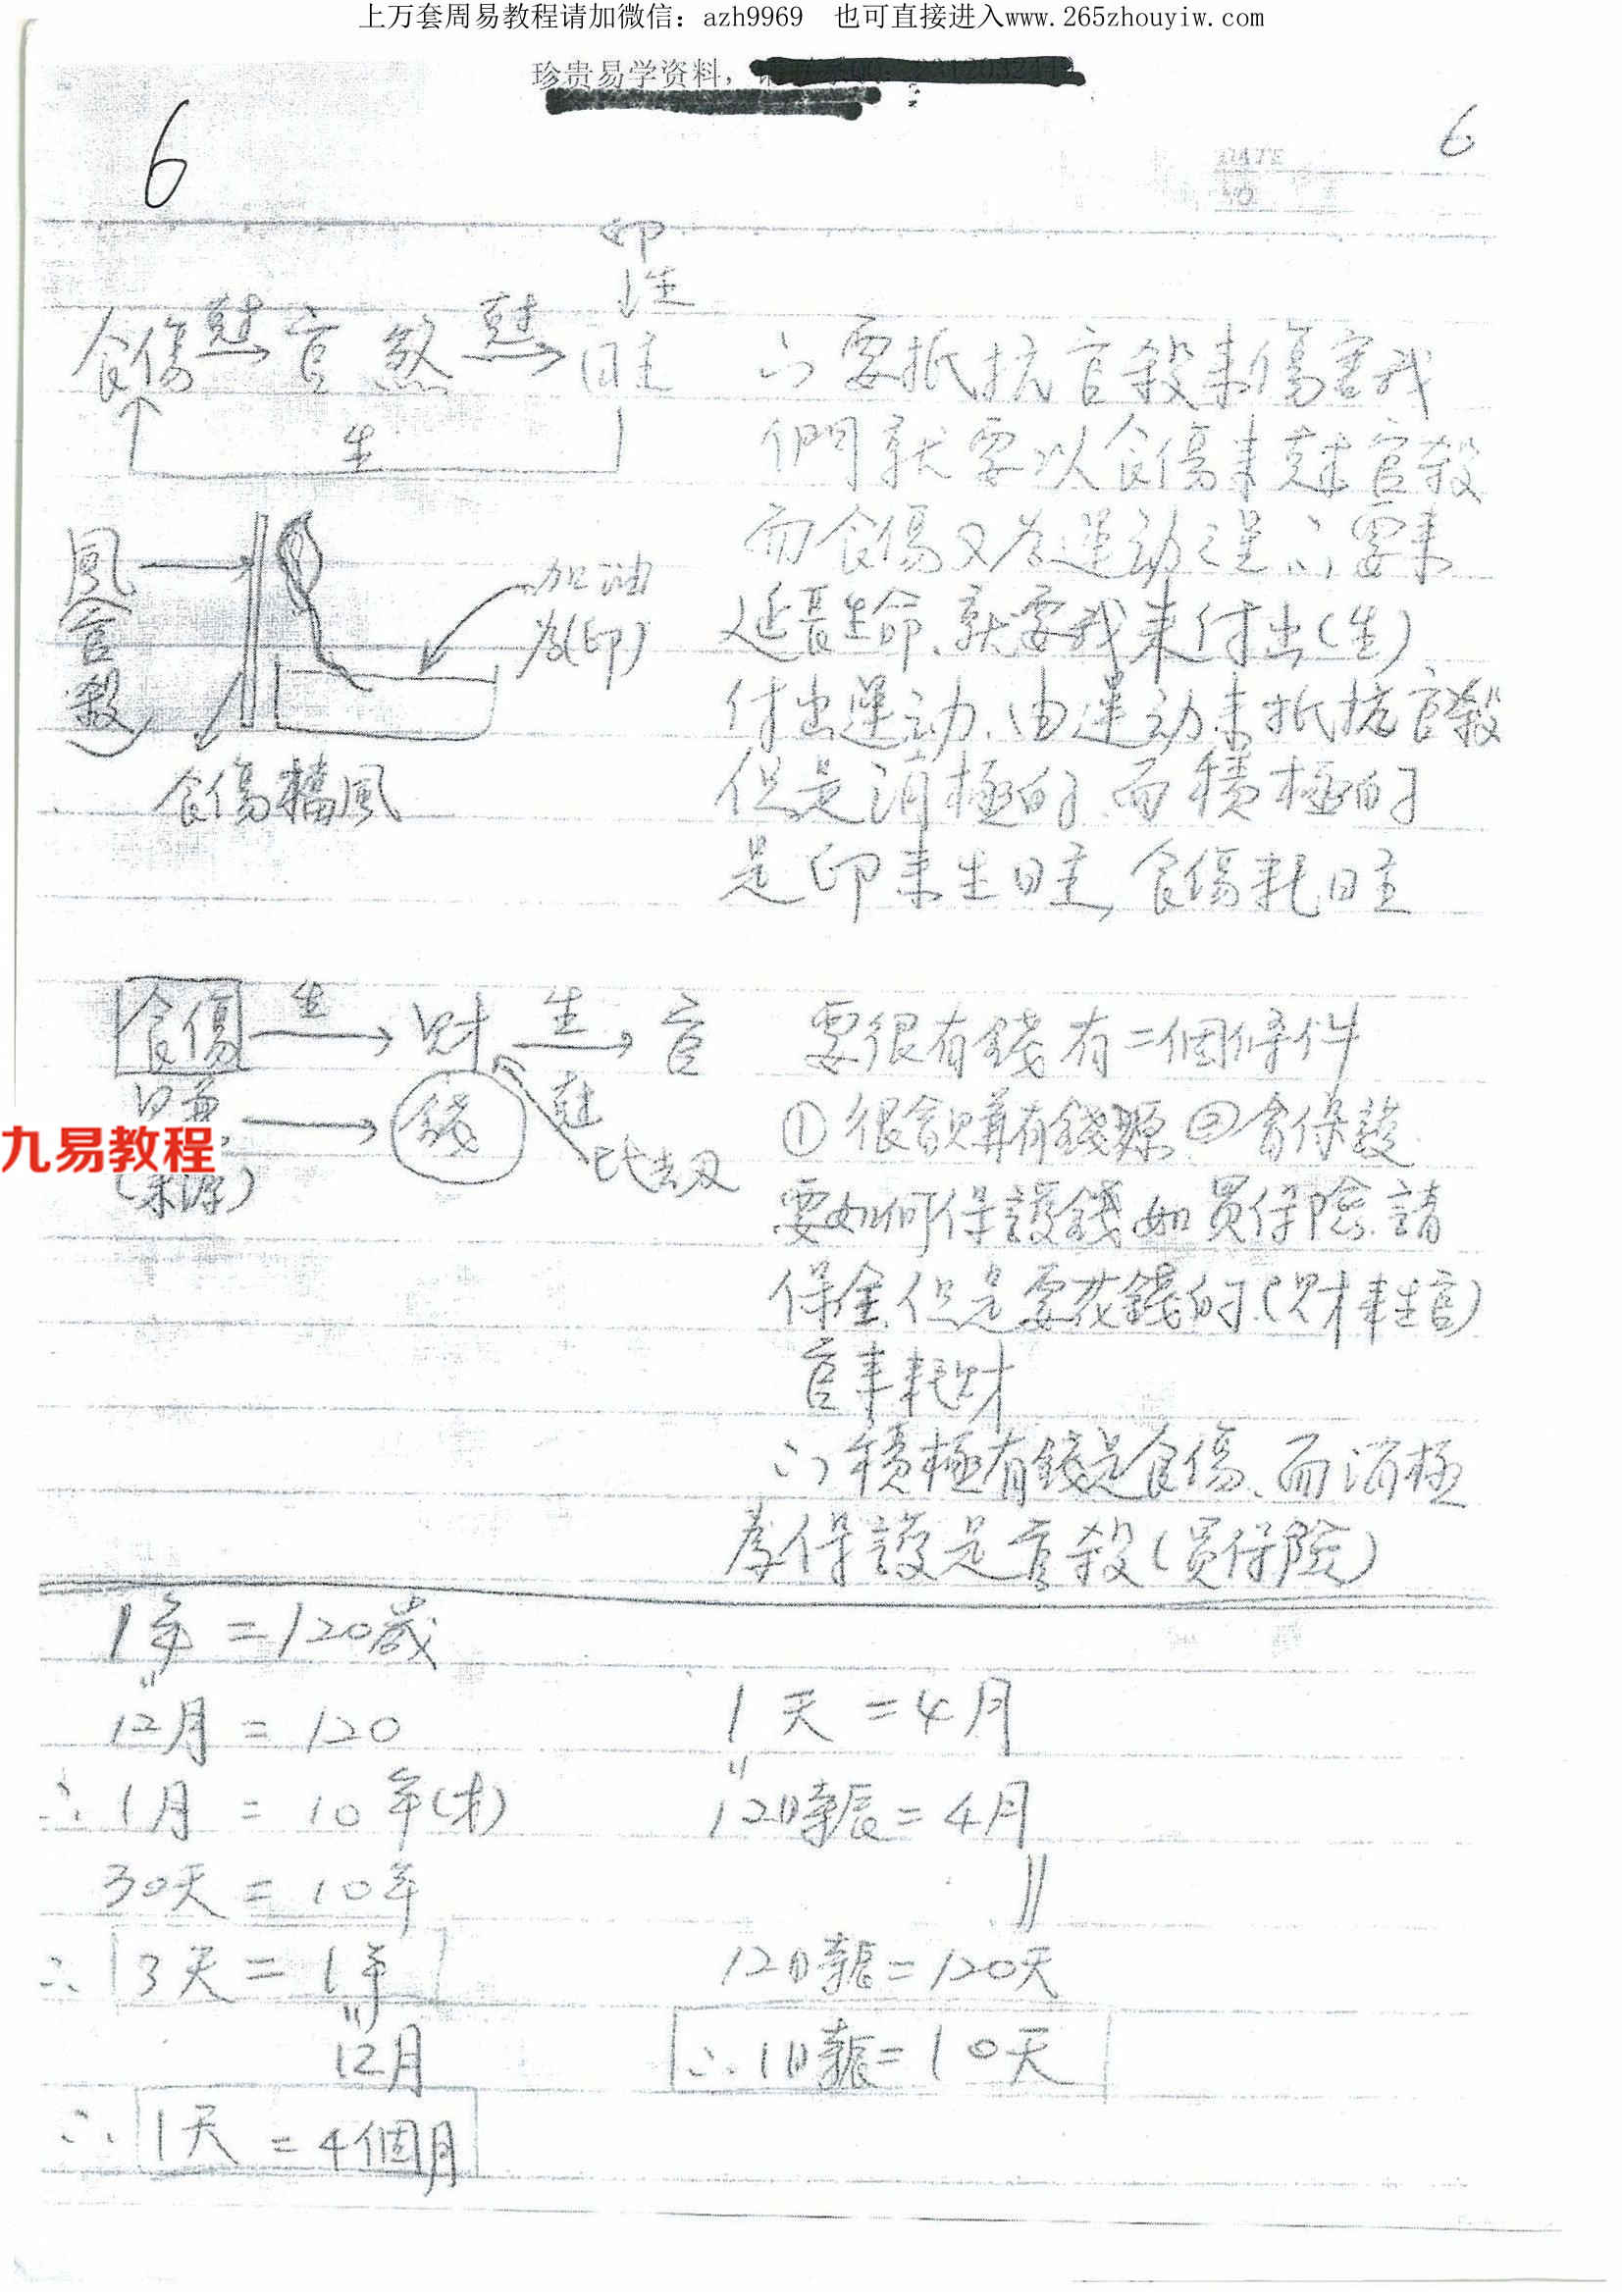 上万套周易教程请加微信：azh9969 也可直接进入www.265zhouyiw.com
珍贵易学资料，
6
6
DATE
印
↓生
食傷 剋→ 官煞 剋→ 日主
生
風
(官殺)
加油
為(印)
食傷擋風
∴要抵抗官殺來傷害我
們就要以食傷來剋官殺
而食傷又為運動之星∴要來
延長生命、就要我來付出(生)
付出運動、由運動來抵抗官殺
但是消極的、而積極的
是印來生日主,食傷耗日主
食傷 生→ 財 生→ 官
錢
剋
比劫刃
(來源)
九易教程
要很有錢有二個條件
①很會賺有錢源②會保護
要如何保護錢如買保險.請
保全,但是要花錢的.(財來生官)
官來耗財
∴積極有錢是食傷、而消極
為保護是官殺(買保險)
1年=120歲
12月=120
∴1月=10年(才)
30天=10年
∴3天=1年
12月
∴1天=4個月
1天=4月
12時辰=4月
12時辰=120天
∴1時辰=10天